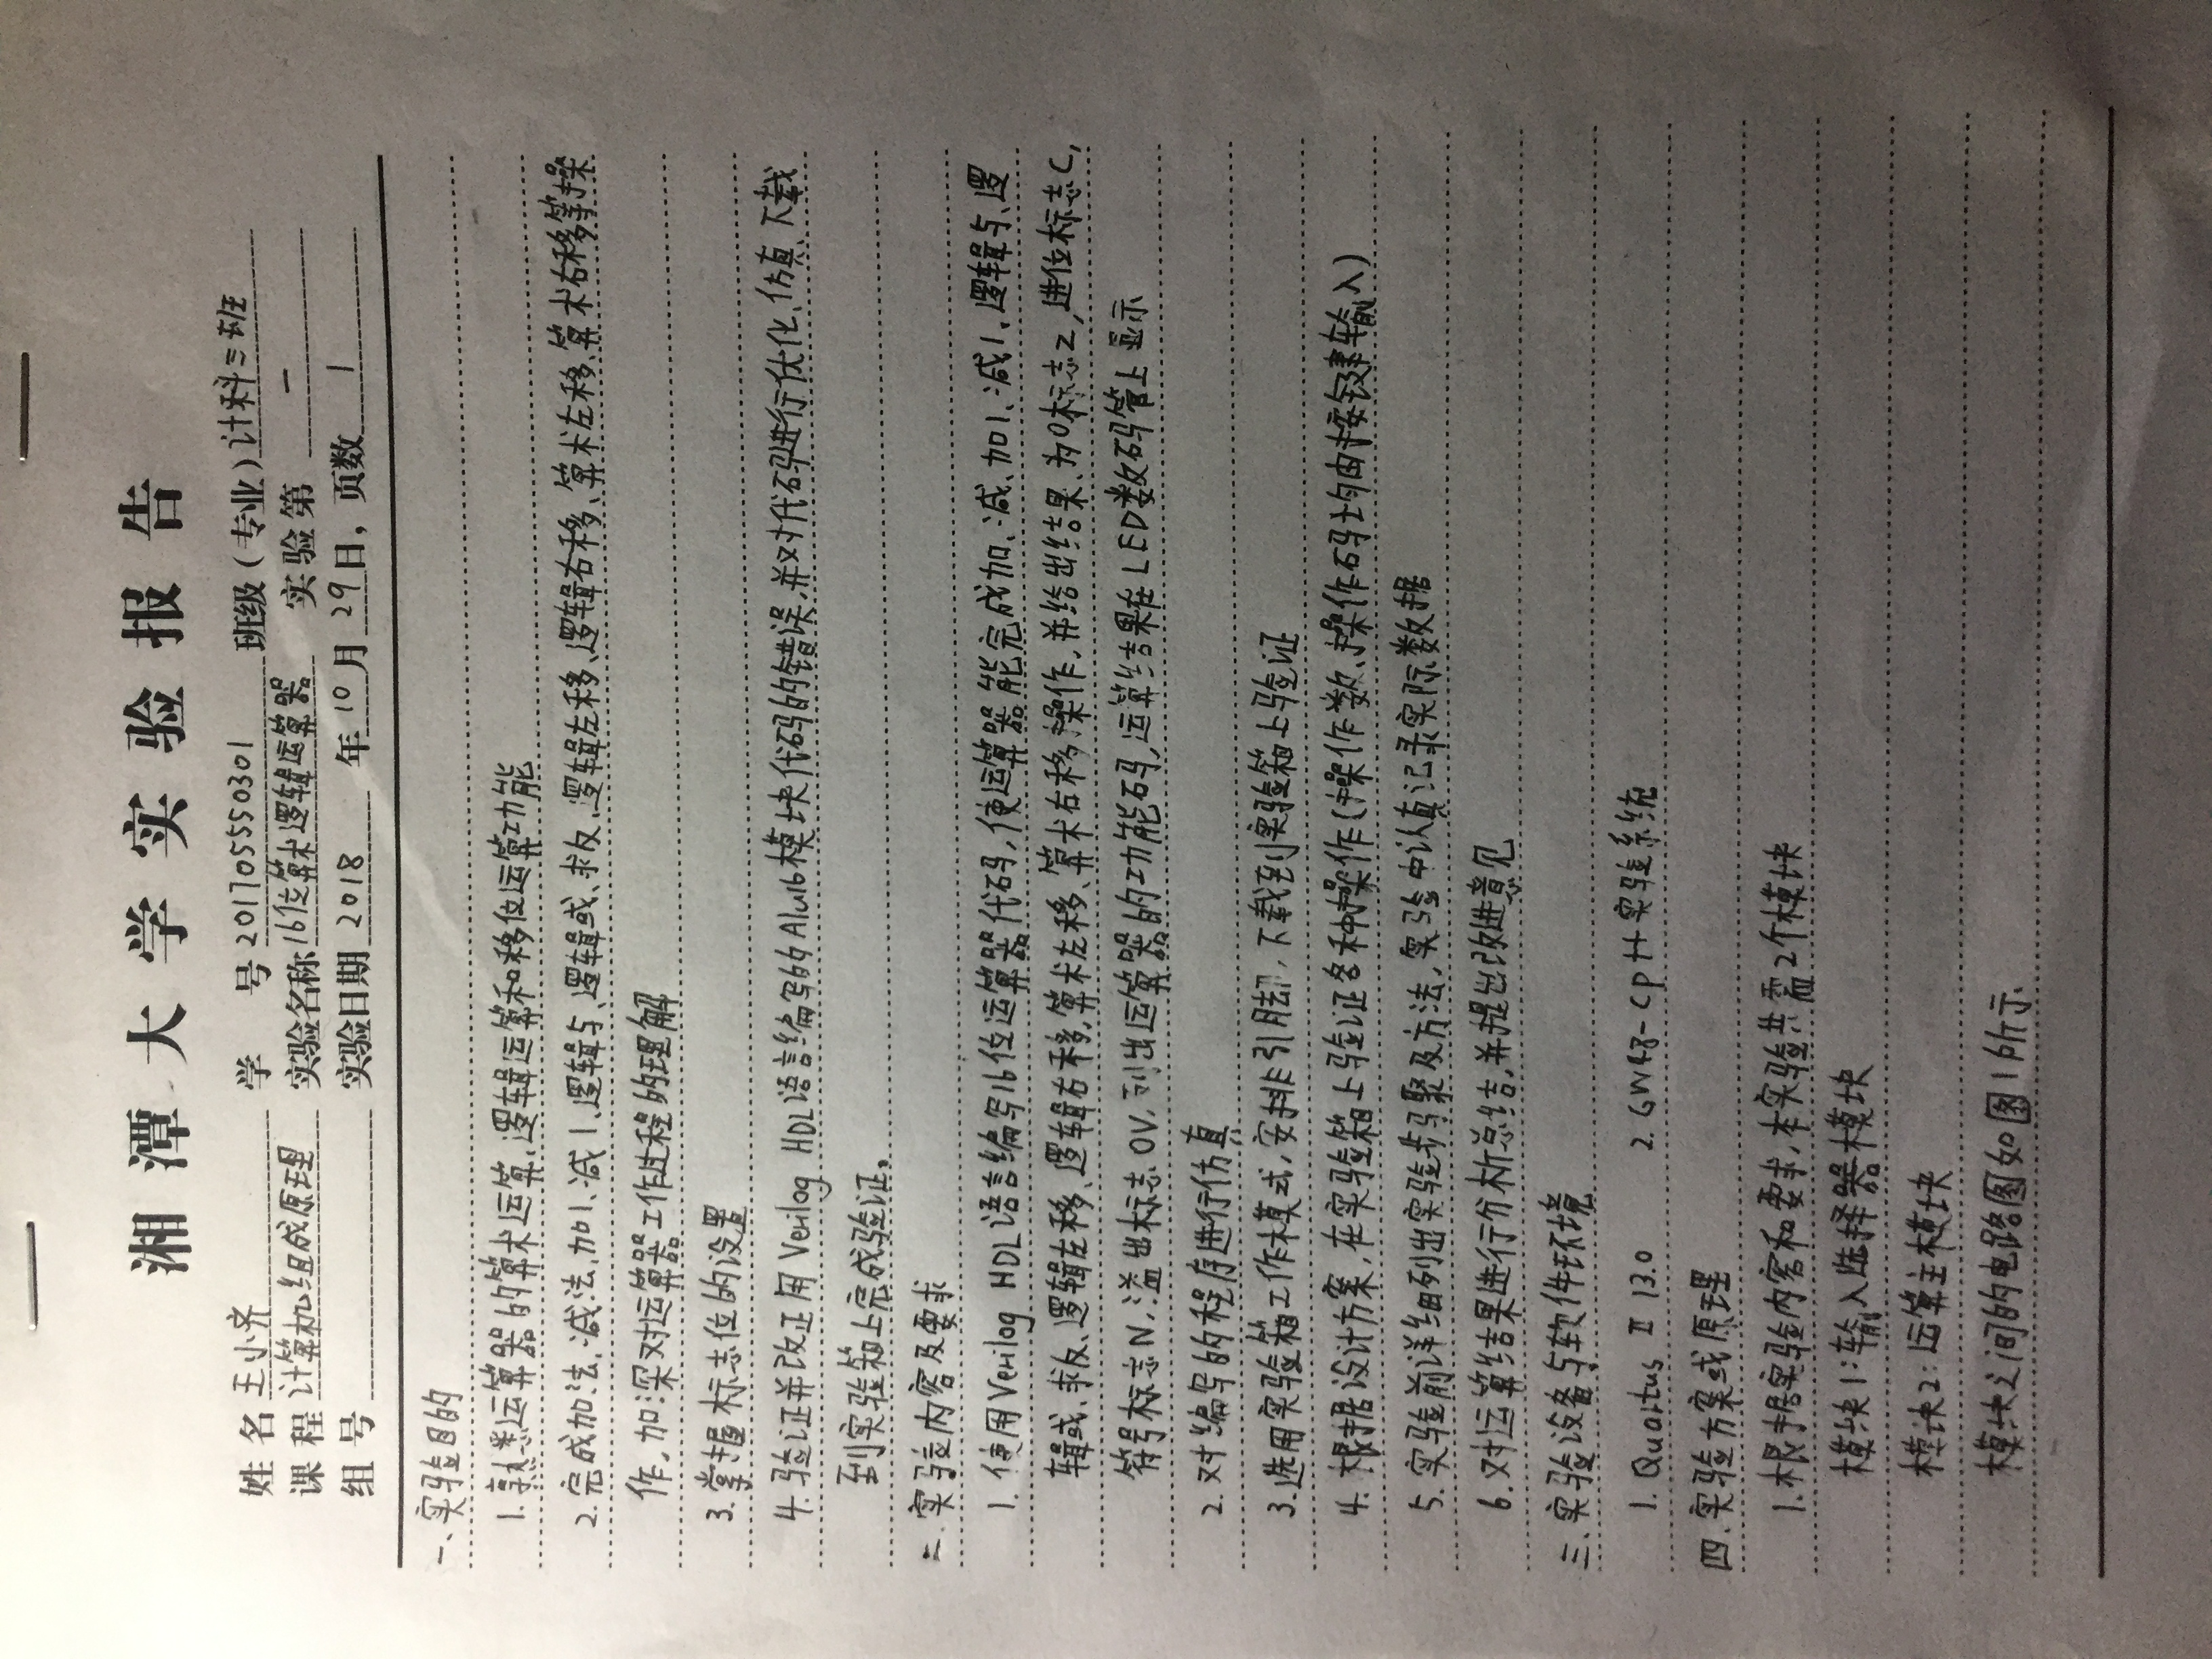 湘潭大学实验报告
姓名 王小齐 学号 201705550301 班级(专业) 计科三班
课程 计算机组成原理 实验名称 16位算术逻辑运算器 实验第 一
组号 实验日期 2018 年 10 月 29 日, 页数 1
一、实验目的
1. 熟悉运算器的算术运算、逻辑运算和移位运算功能
2. 完成加法、减法、加1、减1、逻辑与、逻辑或、求反、逻辑左移、逻辑右移、算术左移、算术右移等操
作,加深对运算器工作过程的理解
3. 掌握标志位的设置
4. 验证并改正用 Verilog HDL语言编写的Alu16模块代码的错误,并对代码进行优化、仿真、下载
到实验箱上完成验证。
二、实验内容及要求
1. 使用Verilog HDL语言编写16位运算器代码,使运算器能完成加、减、加1、减1、逻辑与、逻
辑或、求反、逻辑左移、逻辑右移、算术左移、算术右移操作,并给出结果、为0标志Z,进位标志C,
符号标志N,溢出标志OV,列出运算器的功能码,运算结果在LED数码管上显示
2. 对编写的程序进行仿真
3. 选用实验箱工作模式,安排引脚,下载到实验箱上验证
4. 根据设计方案,在实验箱上验证各种操作(操作数、操作码均由按键输入)
5. 实验前详细列出实验步骤及方法,实验中认真记录实际数据
6. 对运算结果进行分析总结,并提出改进意见
三、实验设备与软件环境
1. Quartus Ⅱ 13.0 2. GW48-CP++实验系统
四、实验方案或原理
1. 根据实验内容和要求,本实验共需2个模块
模块1:输入选择器模块
模块2:运算主模块
模块之间的电路图如图1所示.